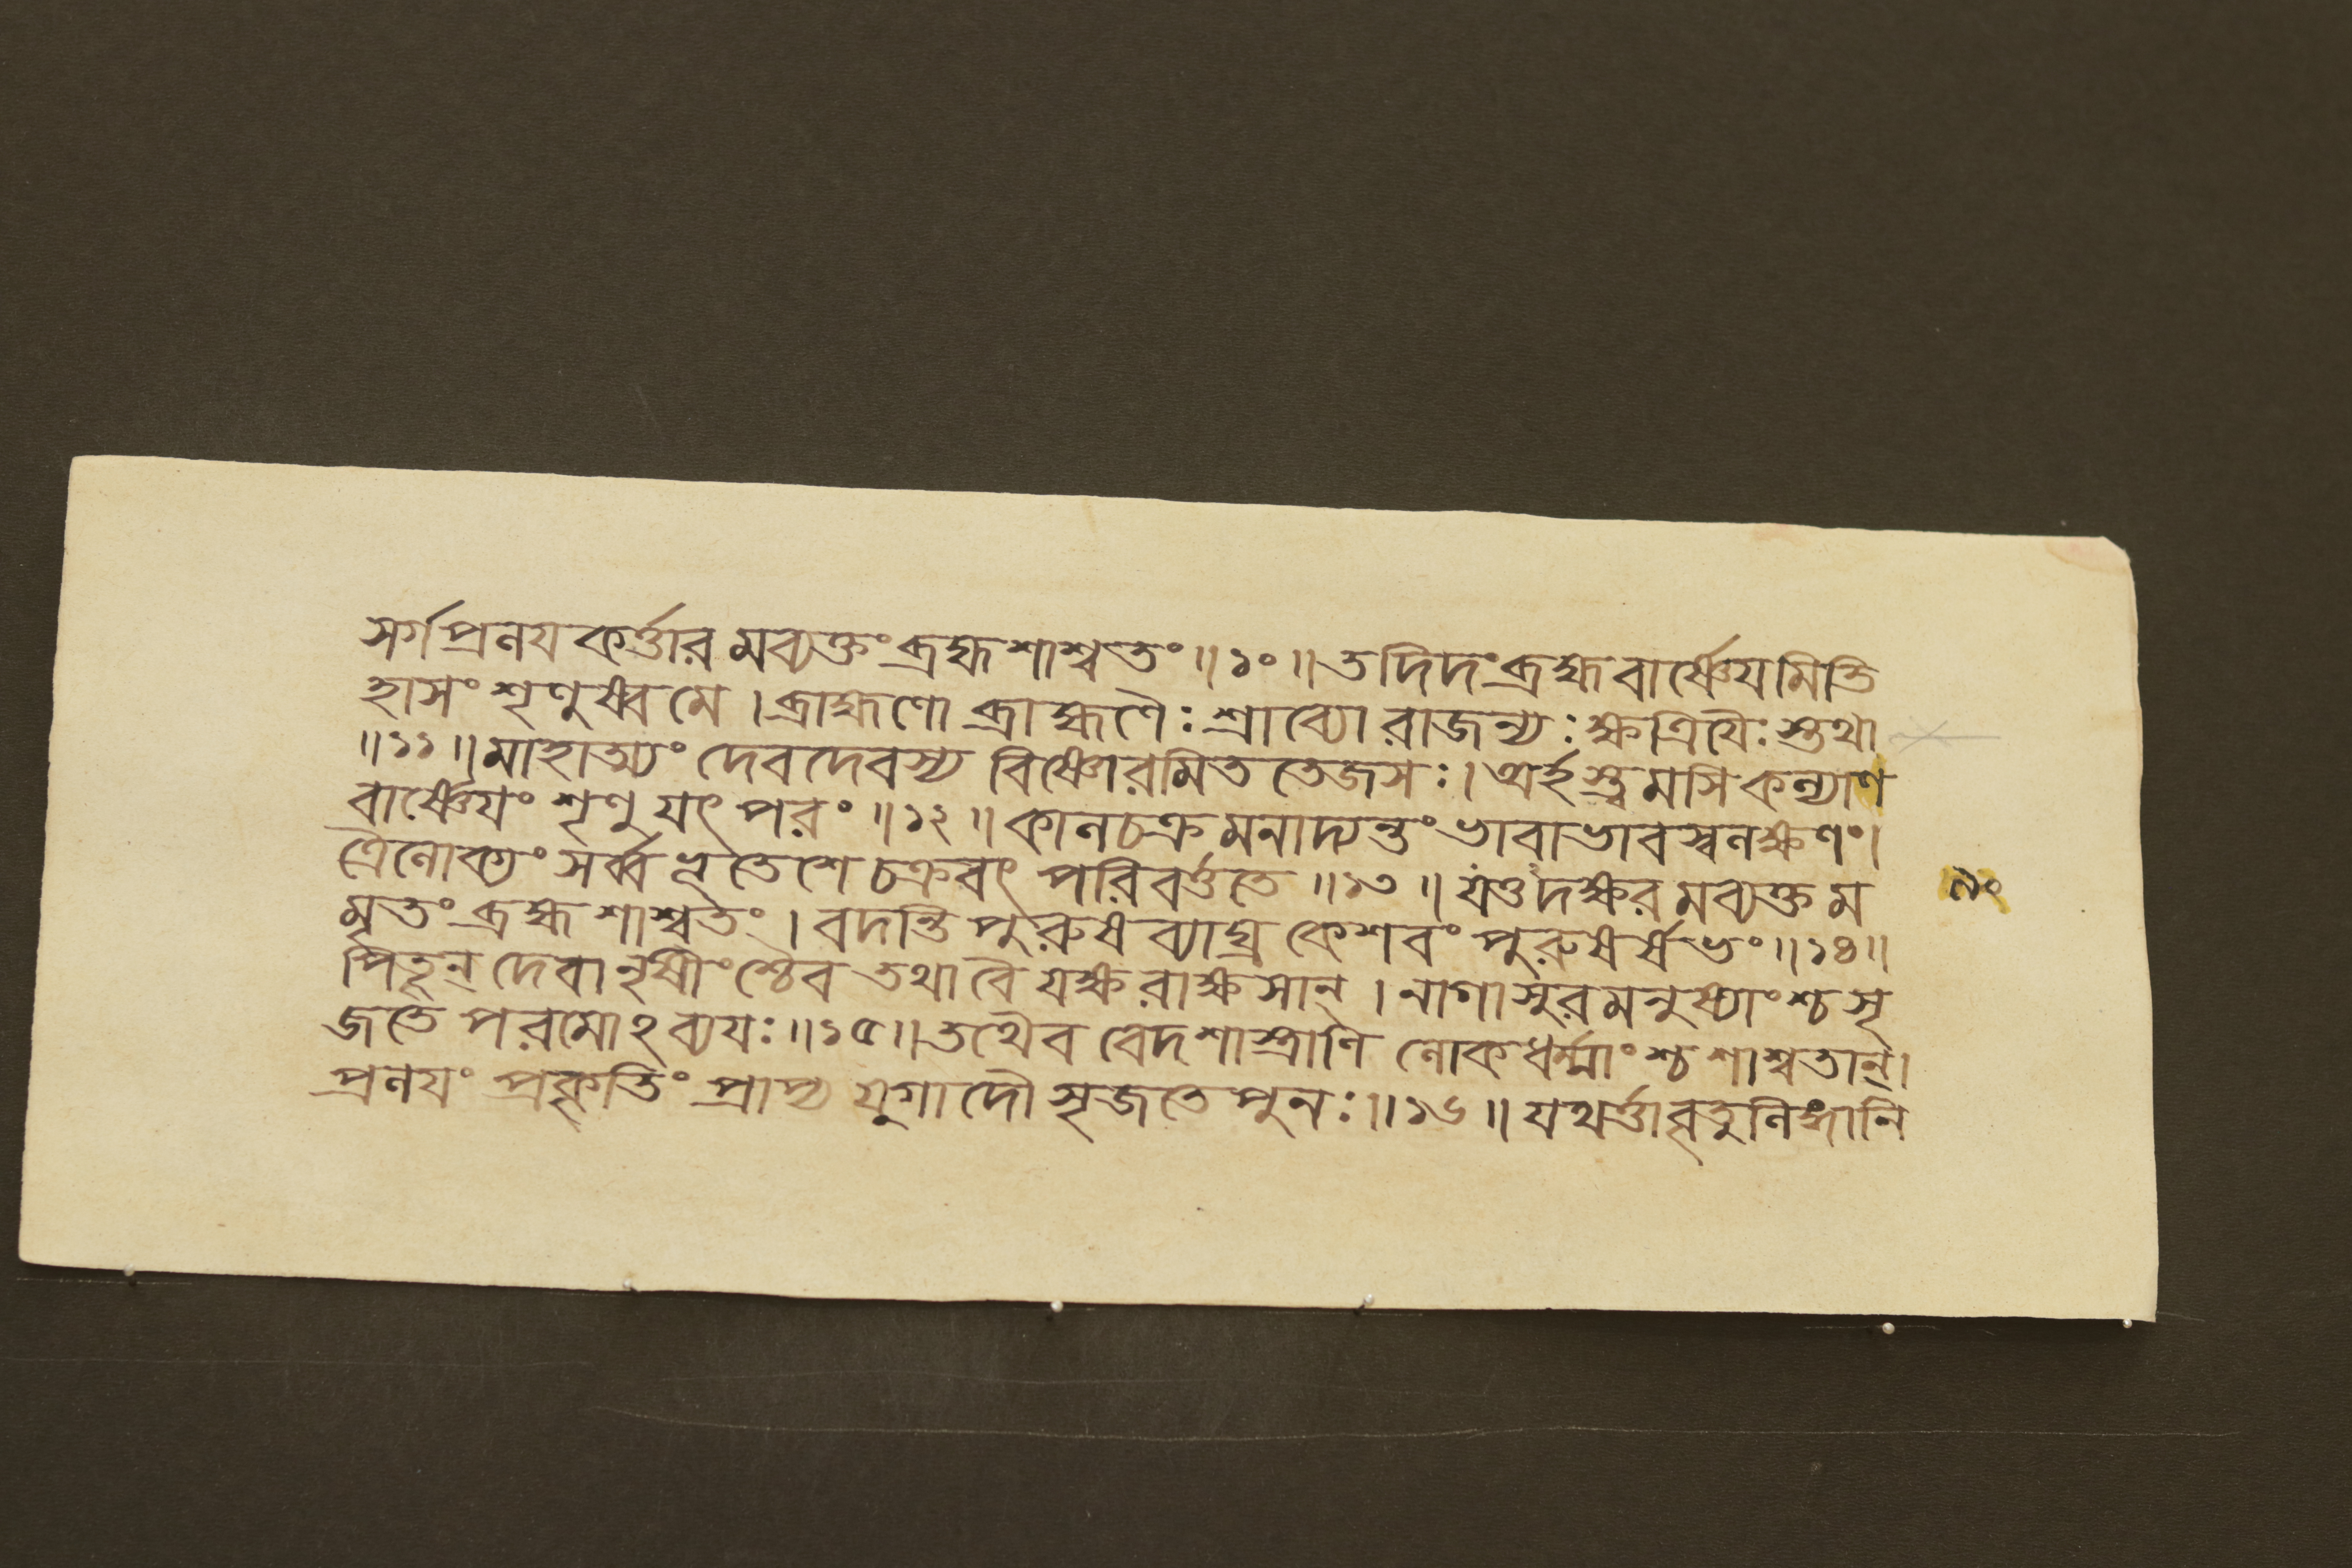 সর্গপ্রলয়কর্ত্তারমব্যক্তং ব্রহ্মশাশ্বতং ॥১০॥ তদিদং ব্রহ্ম বার্ষ্ণেয়মিতি
হাসং শৃণুষ্ব মে । ব্রাহ্মণো ব্রাহ্মণৈঃ শ্রাব্যো রাজন্যঃ ক্ষত্রিয়ৈঃ স্তথা
॥১১॥ মাহাত্ম্যং দেবদেবস্য বিষ্ণোরমিত তেজসঃ । অর্হস্ত্বমসি কল্যাণ
বার্ষ্ণেয়ং শৃণু যৎ পরং ॥১২॥ কালচক্রমনাদ্যন্তং ভাবাভাবস্বলক্ষণং ।
ত্রৈলোক্যং সর্ব্বভূতেশে চক্রবৎ পরিবর্ত্ততে ॥১৩॥ যত্তদক্ষরমব্যক্তম
লং
মৃতং ব্রহ্ম শাশ্বতং । বদন্তি পুরুষব্যাঘ্র কেশবং পুরুষর্ষভং ॥১৪॥
পিতৄন্ দেবানৃষীংশ্চৈব তথা বৈ যক্ষরাক্ষসান্ । নাগাসুরমনুষ্যাংশ্চ সৃ
জতে পরমোঽব্যয়ঃ ॥১৫॥ তথৈব বেদশাস্ত্রাণি লোকধর্ম্মাংশ্চ শাশ্বতান্ ।
প্রলয়ং প্রকৃতিং প্রাপ্য যুগাদৌ সৃজতে পুনঃ ॥১৬॥ যথর্ত্তাবৃতুলিঙ্গানি